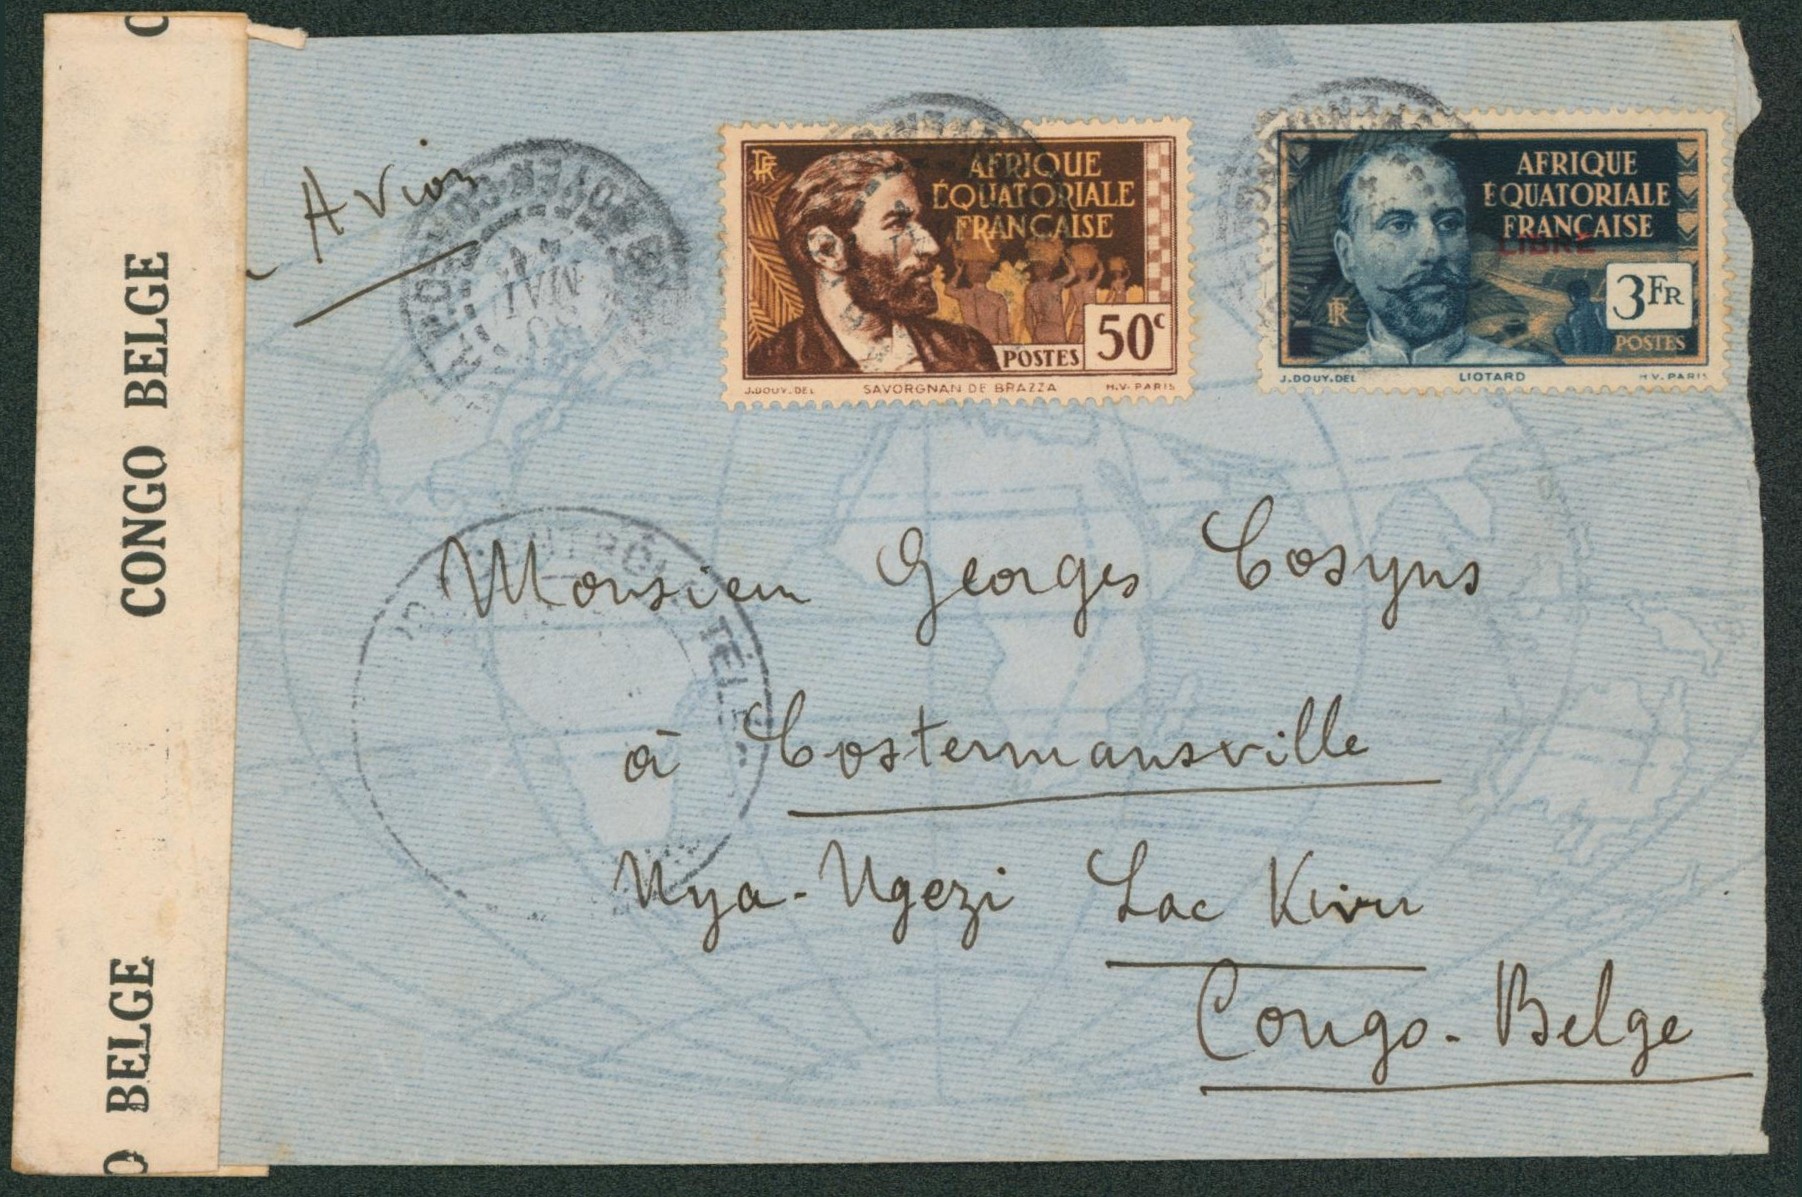 Avion
RF
AFRIQUE
ÉQUATORIALE
FRANÇAISE
50c
POSTES
J.DOUY.DEL SAVORGNAN DE BRAZZA H.V. PARIS
AFRIQUE
ÉQUATORIALE
FRANÇAISE
LIBRE
RF
3FR
POSTES
J.DOUY.DEL LIOTARD H.V. PARIS
MAI
CONGO BELGE
BELGE
Monsieur Georges Cosyns
à Costermansville
Nya-Ngezi Lac Kivu
Congo-Belge